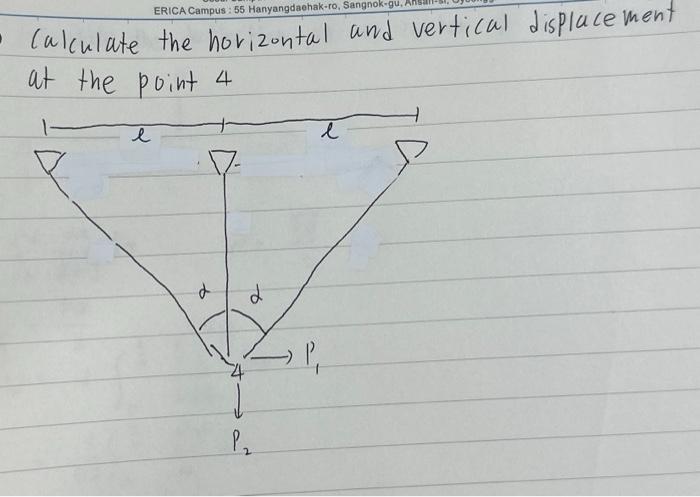 ERICA Campus : 55 Hanyangdaehak-ro, Sangnok-gu,
Calculate the horizontal and vertical displacement
at the point 4
l l
α α
4
P₁
P₂